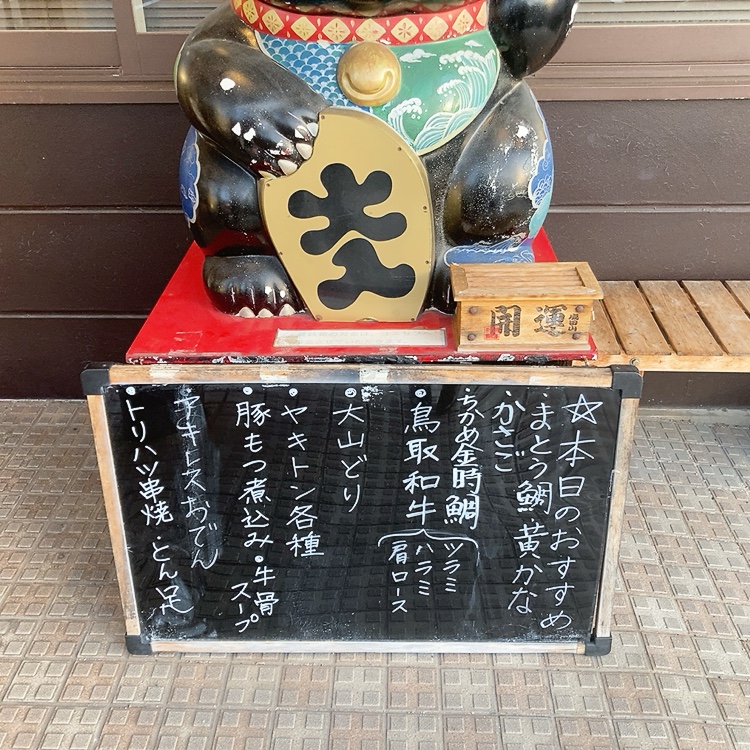 大人
開運
☆本日のおすすめ
・まとう鯛 黄かな
・かさご
・ちかめ金時鯛
・鳥取和牛
ツラミ
ハラミ
肩ロース
・大山どり
・ヤキトン各種
・豚もつ煮込み・牛骨スープ
アキレスおでん
・トリハツ串焼・とん足